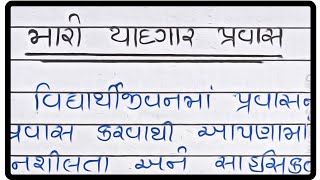 મારી યાદગાર પ્રવાસ
વિદ્યાર્થીજીવનમાં પ્રવાસન
પ્રવાસ કરવાથી આપણામાં
નશીલતા અને સાહસિકત